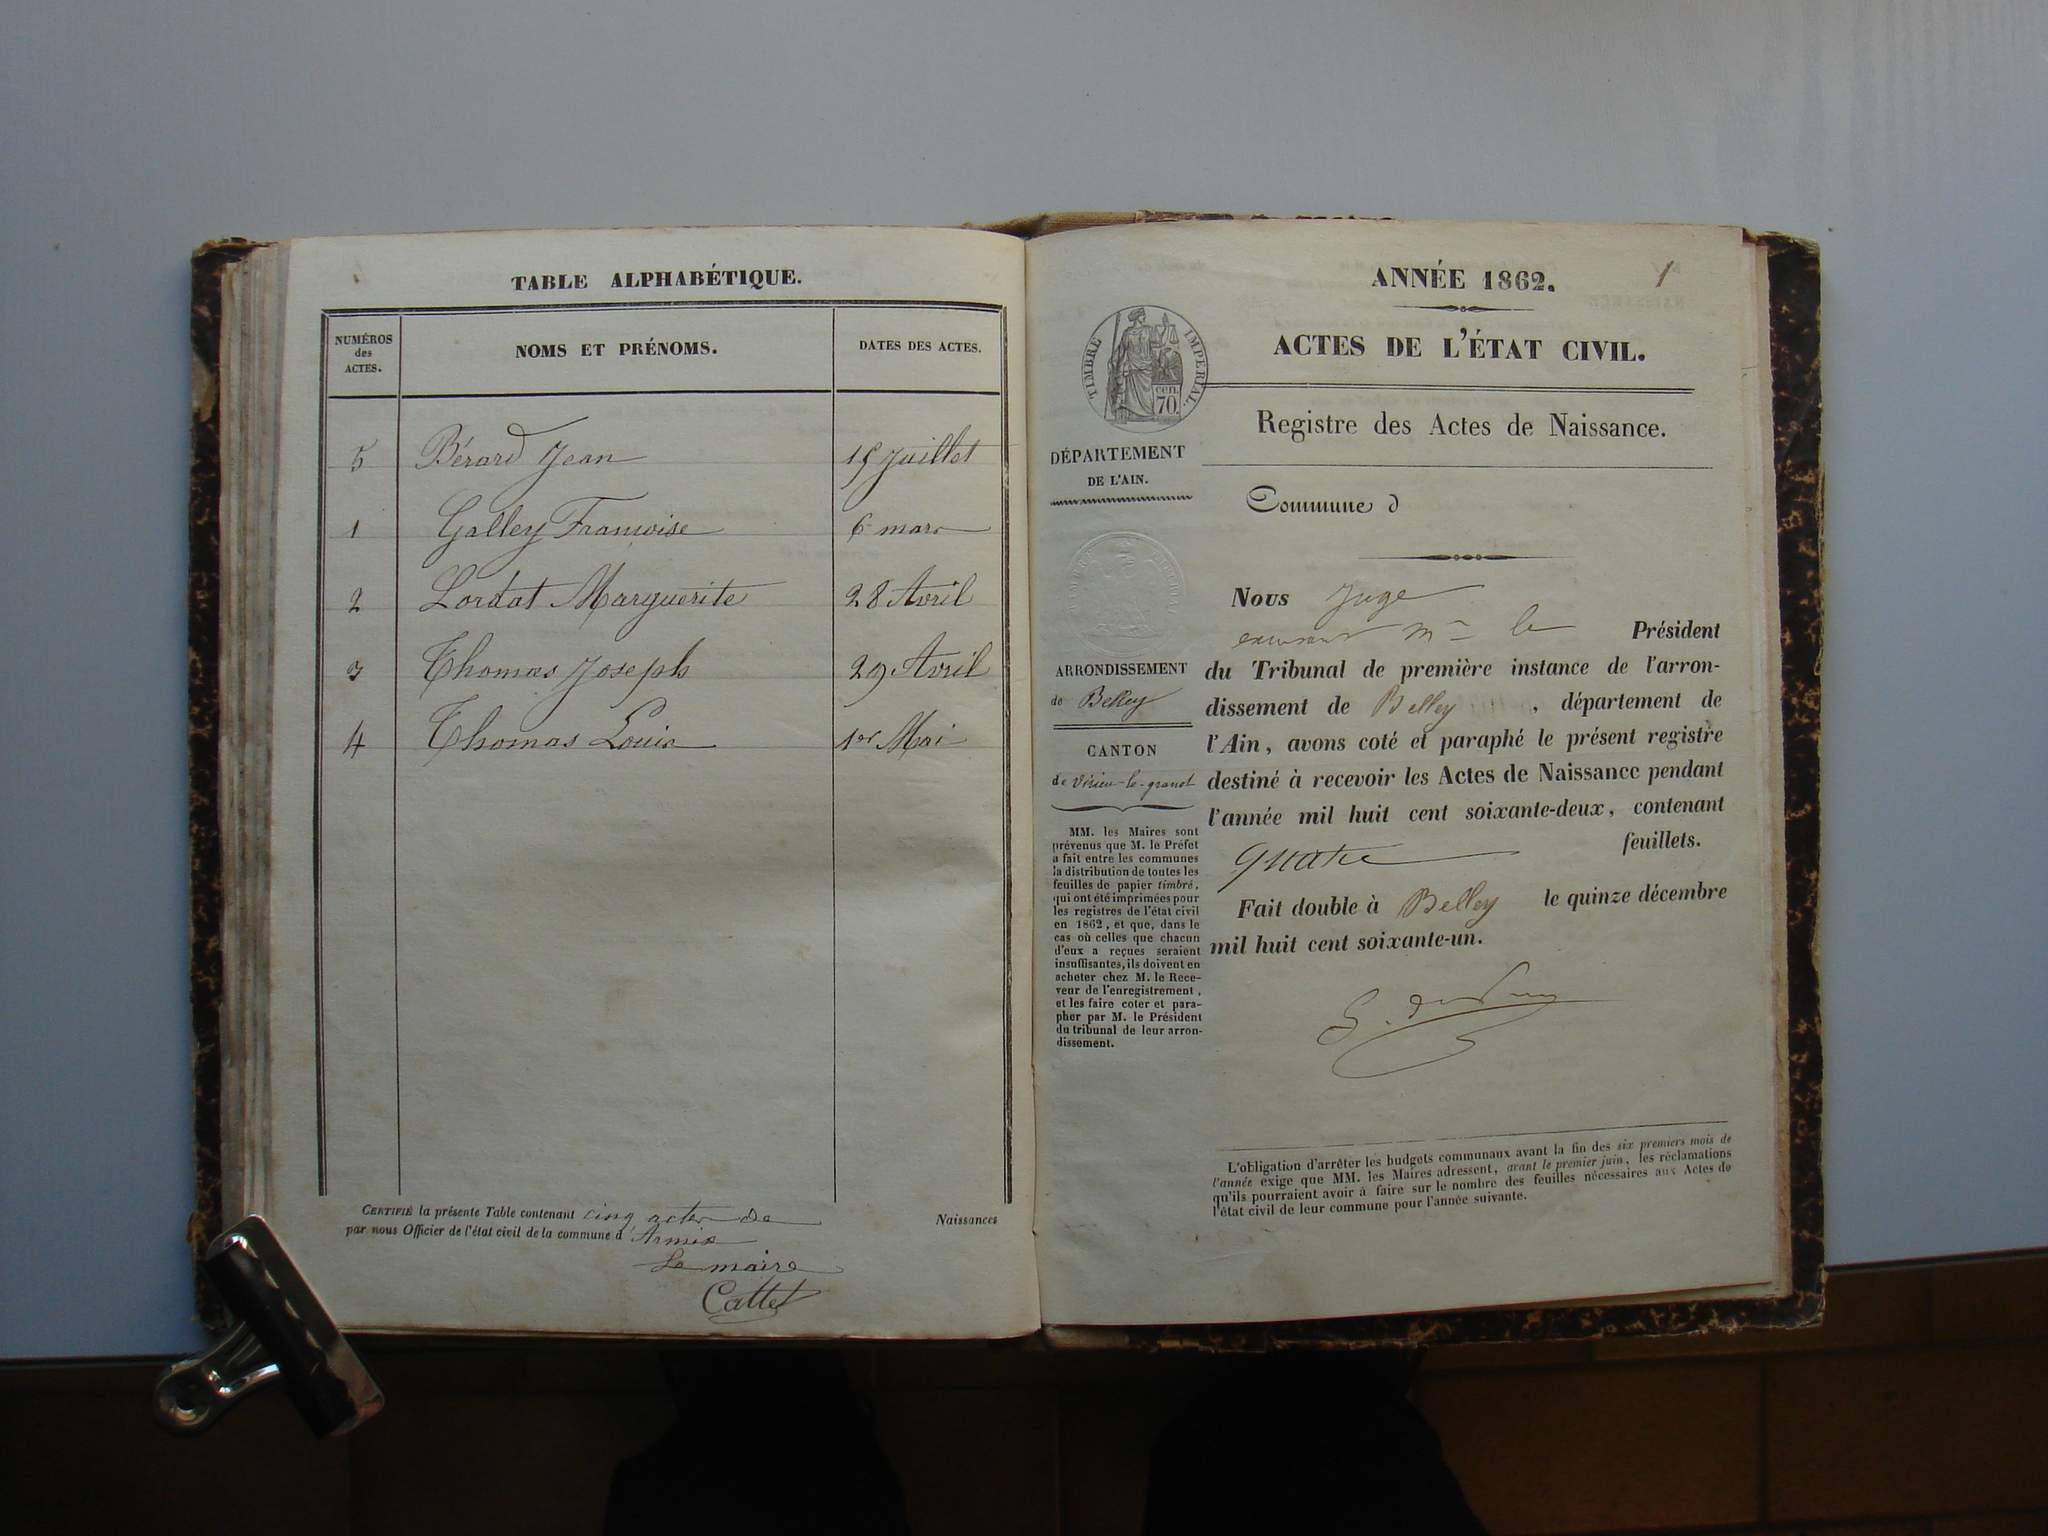 TABLE ALPHABÉTIQUE.
NUMÉROS
des
ACTES.
NOMS ET PRÉNOMS.
DATES DES ACTES.
5 Bérard Jean 15 Juillet
1 Galley Françoise 6 mars
2 Lordat Marguerite 28 Avril
3 Thomas Joseph 29 Avril
4 Thomas Louis 1er Mai
CERTIFIÉ la présente Table contenant cinq actes de Naissances
par nous Officier de l'état civil de la commune d'Armix
Le maire
Cattet
1
ANNÉE 1862.
ACTES DE L'ÉTAT CIVIL.
TIMBRE IMPÉRIAL.
cen.
70.
Registre des Actes de Naissance.
DÉPARTEMENT
DE L'AIN.
Commune d
ARRONDISSEMENT
de Belley
CANTON
de Virieu-le-grand
MM. les Maires sont
prévenus que M. le Préfet
a fait entre les communes
la distribution de toutes les
feuilles de papier timbré,
qui ont été imprimées pour
les registres de l'état civil
en 1862, et que, dans le
cas où celles que chacun
d'eux a reçues seraient
insuffisantes, ils doivent en
acheter chez M. le Rece-
veur de l'enregistrement,
et les faire coter et para-
pher par M. le Président
du tribunal de leur arron-
dissement.
Nous Juge
Mr le Président
du Tribunal de première instance de l'arron-
dissement de Belley, département de
l'Ain, avons coté et paraphé le présent registre
destiné à recevoir les Actes de Naissance pendant
l'année mil huit cent soixante-deux, contenant
quatre feuillets.
Fait double à Belley le quinze décembre
mil huit cent soixante-un.
L'obligation d'arrêter les budgets communaux avant la fin des six premiers mois de
l'année exige que MM. les Maires adressent, avant le premier juin, les réclamations
qu'ils pourraient avoir à faire sur le nombre des feuilles nécessaires aux Actes de
l'état civil de leur commune pour l'année suivante.